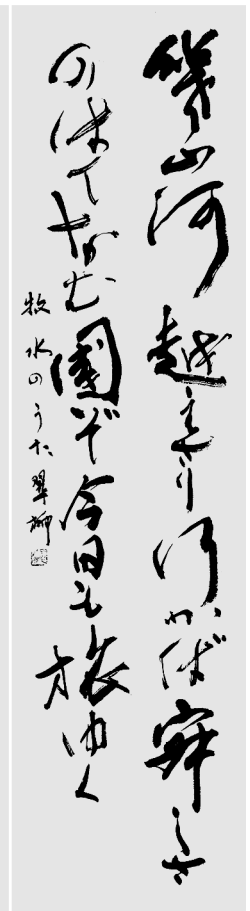 幾山河越えさり行かば寂しさ
のはてなむ國ぞ今日も旅ゆく
牧水のうた 翠柳